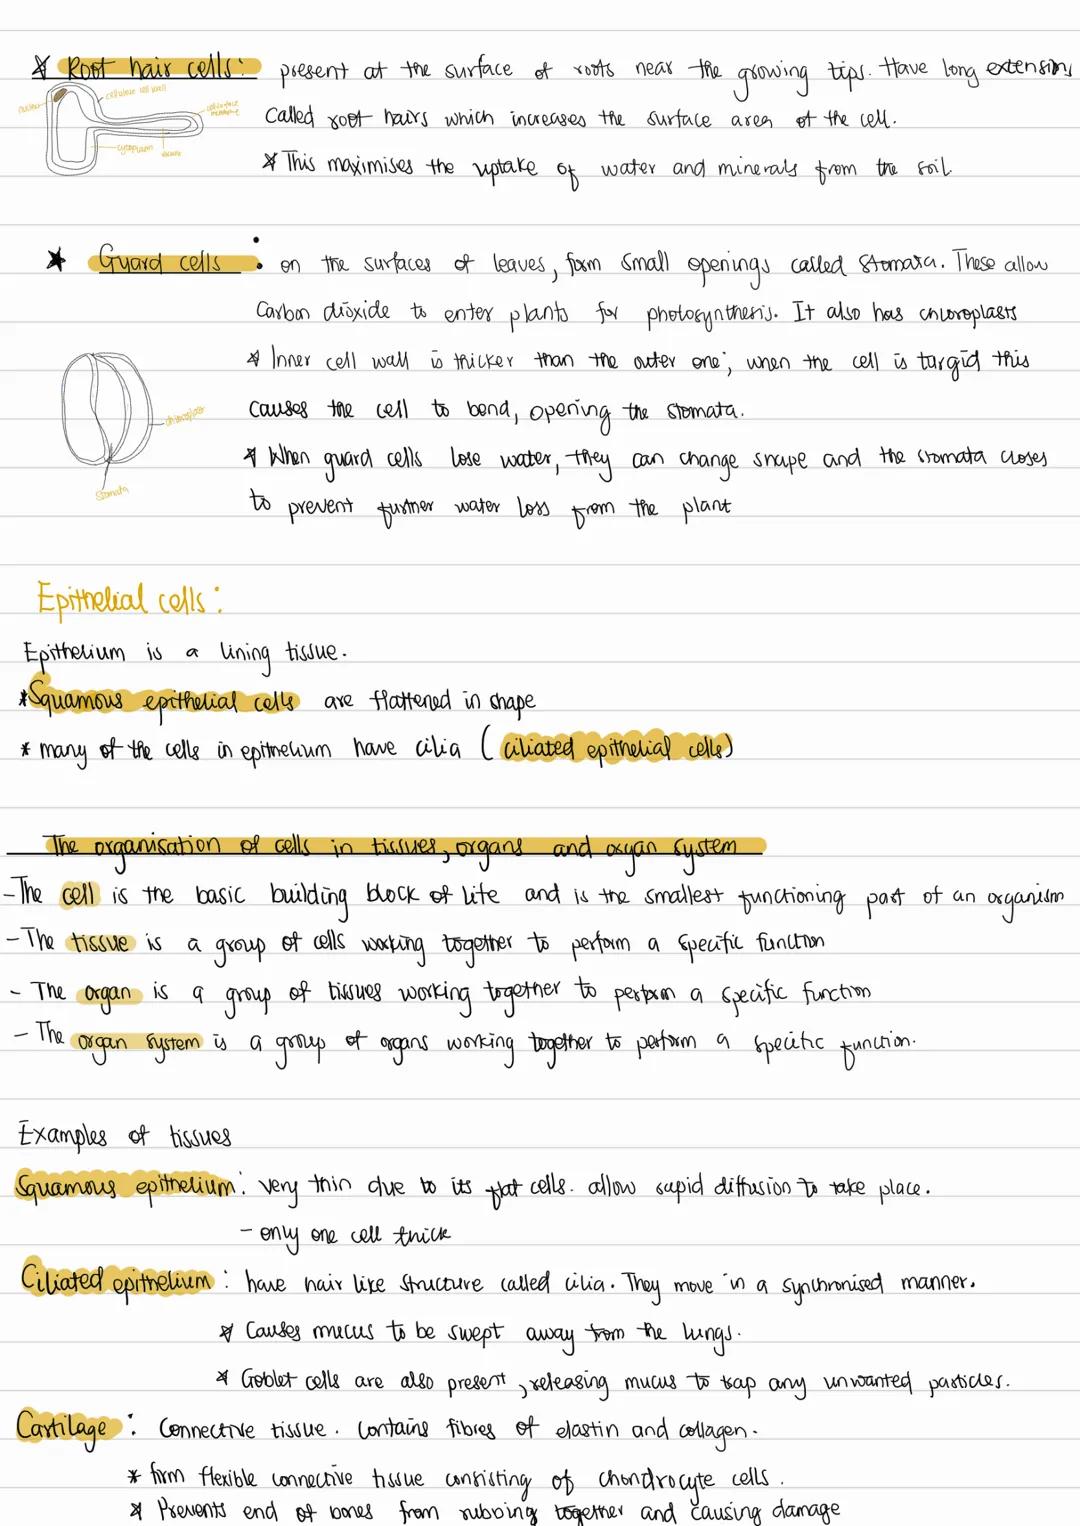 * Root hair cells: present at the surface of roots near the growing tips. Have long extensions
nucleus
cellulose cell wall
cell surface membrane
cytoplasm
vacuole
Called root hairs which increases the surface area of the cell.
* This maximises the uptake of water and minerals from the soil.
★ Guard cells : on the surfaces of leaves, form small openings called stomata. These allow
Carbon dioxide to enter plants for photosynthesis. It also has chloroplasts
* Inner cell wall is thicker than the outer one; when the cell is turgid this
causes the cell to bend, opening the stomata.
chloroplast
* When guard cells lose water, they can change shape and the stomata closes
Stomata
to prevent further water loss from the plant
Epithelial cells:
Epithelium is a lining tissue.
* Squamous epithelial cells are flattened in shape
* many of the cells in epithelium have cilia (ciliated epithelial cells)
The organisation of cells in tissues, organs and organ system
- The cell is the basic building block of life and is the smallest functioning part of an organism
- The tissue is a group of cells working together to perform a specific function
- The organ is a group of tissues working together to perform a specific function
- The organ system is a group of organs working together to perform a specific function.
Examples of tissues
Squamous epithelium: very thin due to its flat cells. allow rapid diffusion to take place.
- only one cell thick
Ciliated epithelium : have hair like structure called cilia. They move in a synchronised manner.
* Causes mucus to be swept away from the lungs.
* Goblet cells are also present, releasing mucus to trap any unwanted particles.
Cartilage : Connective tissue. Contains fibres of elastin and collagen.
* firm flexible connective tissue consisting of chondrocyte cells.
* Prevents end of bones from rubbing together and causing damage